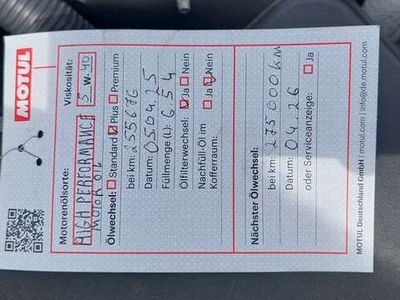 MOTUL
Motorenölsorte:
HIGH PERFORMANCE
MOTOR OIL
Viskosität:
5 W- 40
Ölwechsel: Standard Plus Premium
bei km: 255676
Datum: 05.04.25
Füllmenge (L): 6.5 L
Ölfilterwechsel: Ja Nein
Nachfüll-Öl im
Kofferraum: Ja Nein
Nächster Ölwechsel:
bei km: 275 000 km
Datum: 04.26
oder Serviceanzeige: Ja
MOTUL Deutschland GmbH | motul.com | info@de.motul.com